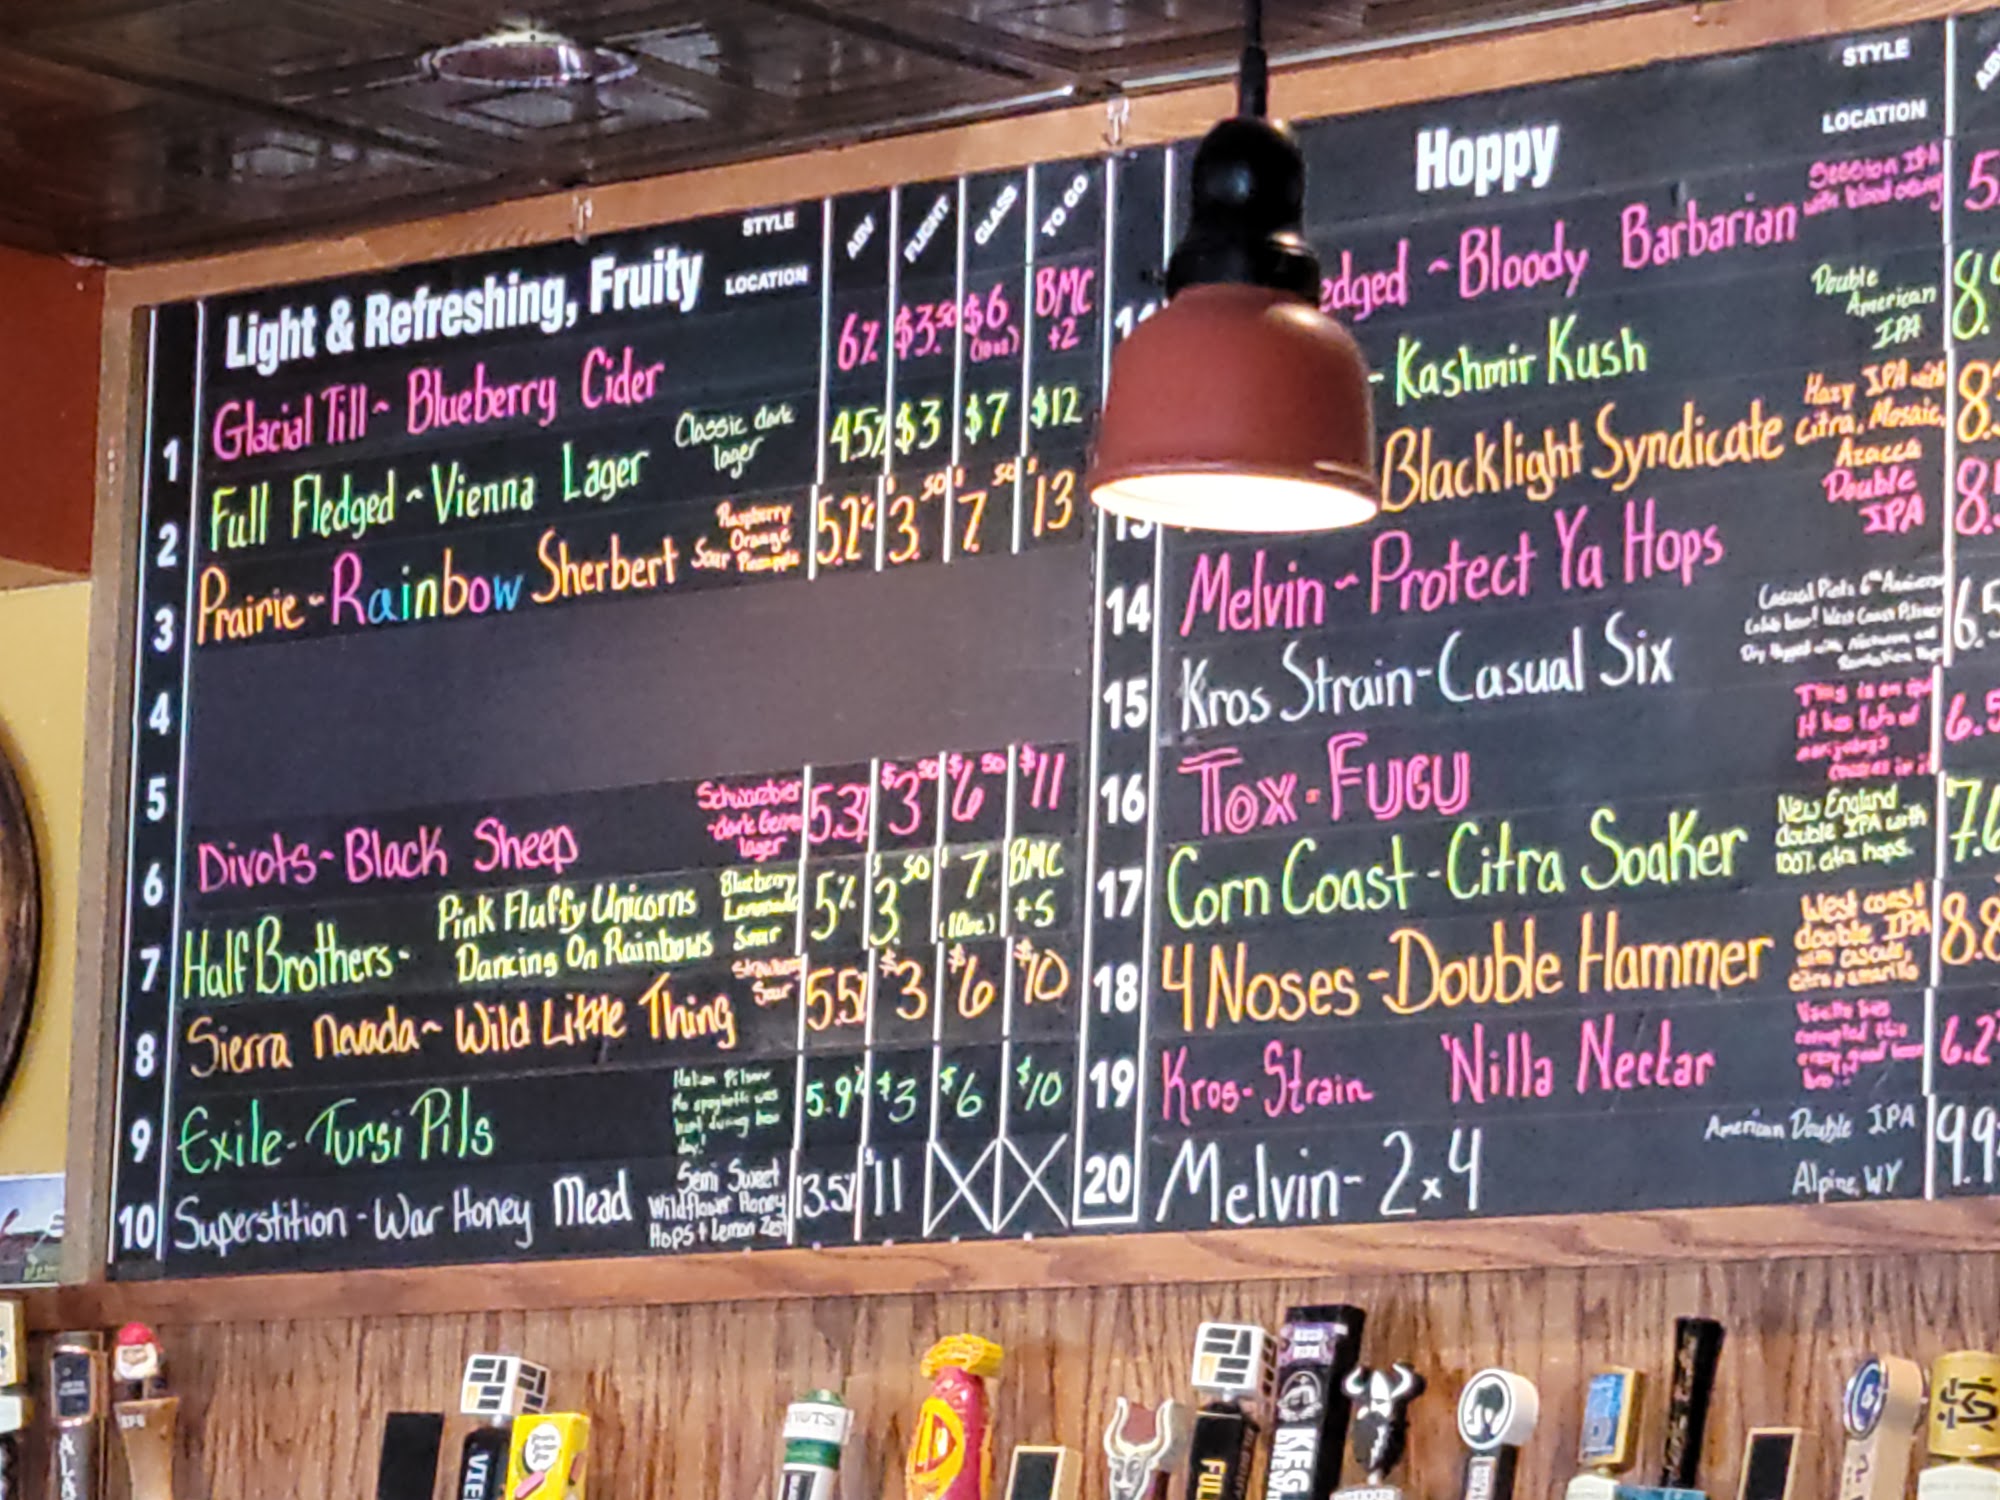 Light & Refreshing, Fruity
STYLE
LOCATION
ABV
FLIGHT
GLASS
TO GO
1 Glacial Till ~ Blueberry Cider 6% $3.50 $6 (10oz) BMC +2
2 Full Fledged ~ Vienna Lager Classic dark lager 4.5% $3 $7 $12
3 Prairie - Rainbow Sherbert Raspberry Orange Sour Pineapple 5.2% $3.50 $7.50 $13
4
5
6 Divots ~ Black Sheep Schwarzbier - dark German lager 5.3% $3.50 $6.50 $11
7 Half Brothers - Pink Fluffy Unicorns Dancing On Rainbows Blueberry Lemonade Sour 5% $3.50 $7 (10oz) BMC +5
8 Sierra Nevada ~ Wild Little Thing Sour 5.5% $3 $6 $10
9 Exile - Tursi Pils Italian Pilsner No spaghetti was day! 5.9% $3 $6 $10
10 Superstition - War Honey Mead Semi Sweet Wildflower Honey Hops + Lemon Zest 13.5% $11
Hoppy
STYLE
LOCATION
edged ~ Bloody Barbarian Session IPA with blood orang 5.
- Kashmir Kush Double American IPA 8.
Blacklight Syndicate Hazy IPA with citra, Mosaic, Azacca 8.
14 Melvin ~ Protect Ya Hops Double IPA 8.
15 Kros Strain - Casual Six Casual Pints 6th 6.5
16 Tox - Fugu This is an It has lots of 6.5
17 Corn Coast - Citra Soaker New England double IPA with 100% citra hops. 7.6
18 4 Noses - Double Hammer West coast double IPA with cascade, citra & amarillo 8.8
19 Kros-Strain 'Nilla Nectar 6.2
20 Melvin - 2x4 American Double IPA Alpine, WY 9.9